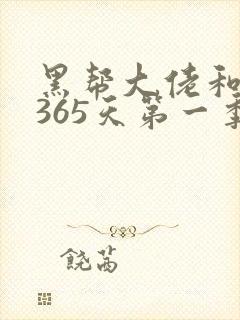 黑帮大佬和
365天第一季
饶茜